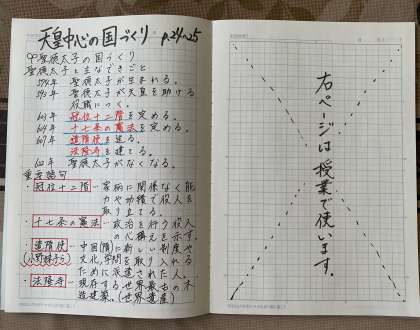 天皇中心の国づくり P.24~25
聖徳太子の国づくり
聖徳太子と主なできごと
574年 聖徳太子が生まれる。
593年 聖徳太子が天皇を助ける
役職につく。
603年 冠位十二階を定める。
604年 十七条の憲法を定める。
607年 遣隋使を送る。
法隆寺を建てる。
622年 聖徳太子がなくなる。
重要語句
・冠位十二階－家柄に関係なく能
力や功績で役人を
取り立てる。
・十七条の憲法－政治を行う役人
の心構えを示す。
・遣隋使－中国(隋)に新しい制度や
(小野妹子ら)文化、学問を取り入れる
ために派遣された人。
・法隆寺－現存する世界最古の木
造建築。(世界遺産)
右ページは授業で使います。